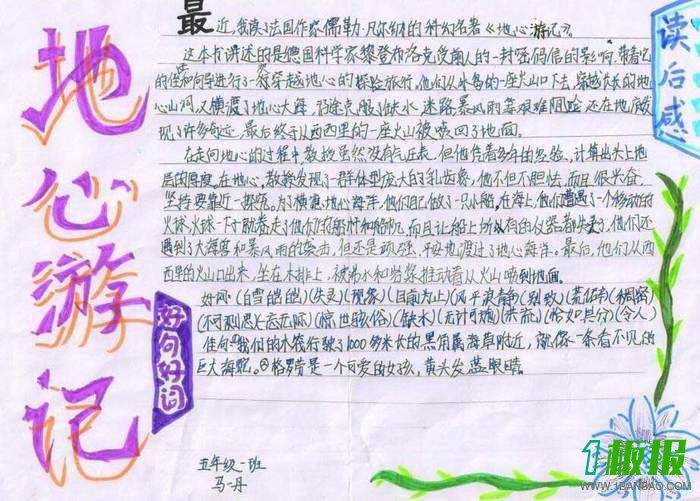 地心游记
读后感
最近，我读了法国作家儒勒·凡尔纳的科幻名著《地心游记》。
这本书讲述的是德国科学家黎登布洛克受前人的一封密码信的影响，带着他
的侄和向导进行了一次穿越地心的探险旅行。他们从冰岛的一座火山口下去，穿越长长的地
心山洞，又横渡了地心大海，沿途克服了缺水、迷路、暴风雨等艰难阻险，还在地底发
现了许多奇迹，最后终于从西西里的一座火山被喷回了地面。
在走向地心的过程中，教授虽然没有气压表，但他凭着多年的经验，计算出头上地
层的厚度。在地心，教授发现了一群体型庞大的乳齿象，他不但不胆怯，而且很兴奋，
坚持要靠近一探究。为了横渡地心海洋，他们自做了一只小船。在海上，他们遭遇了一个移动的
火球，火球一下子就卷走了他们的船帆和桅杆，而且让船上所有的仪器都失灵了，他们还
遇到了大海兽和暴风雨的袭击，但还是顽强、平安地渡过了地心海洋。最后，他们从西
西里的火山口出来，坐在木排上，被沸水和岩浆推动着从火山喷到地面。
好句好词
好词：（白雪皑皑）（失灵）（现象）（目前为止）（风平浪静）（别致）（荒僻）（稠密）
（不可思议）（忐忑不安）（惊世骇俗）（缺水）（无计可施）（洪流）（恰如其分）（令人）
佳句：我们的木筏行驶了1000多米长的黑角属海草附近，就像一条看不见的
巨大海蛇。②格劳蓓是一个可爱的女孩，黄头发，蓝眼睛。
五年级一班
马丹
1板报
WWW.1BANBAO.COM